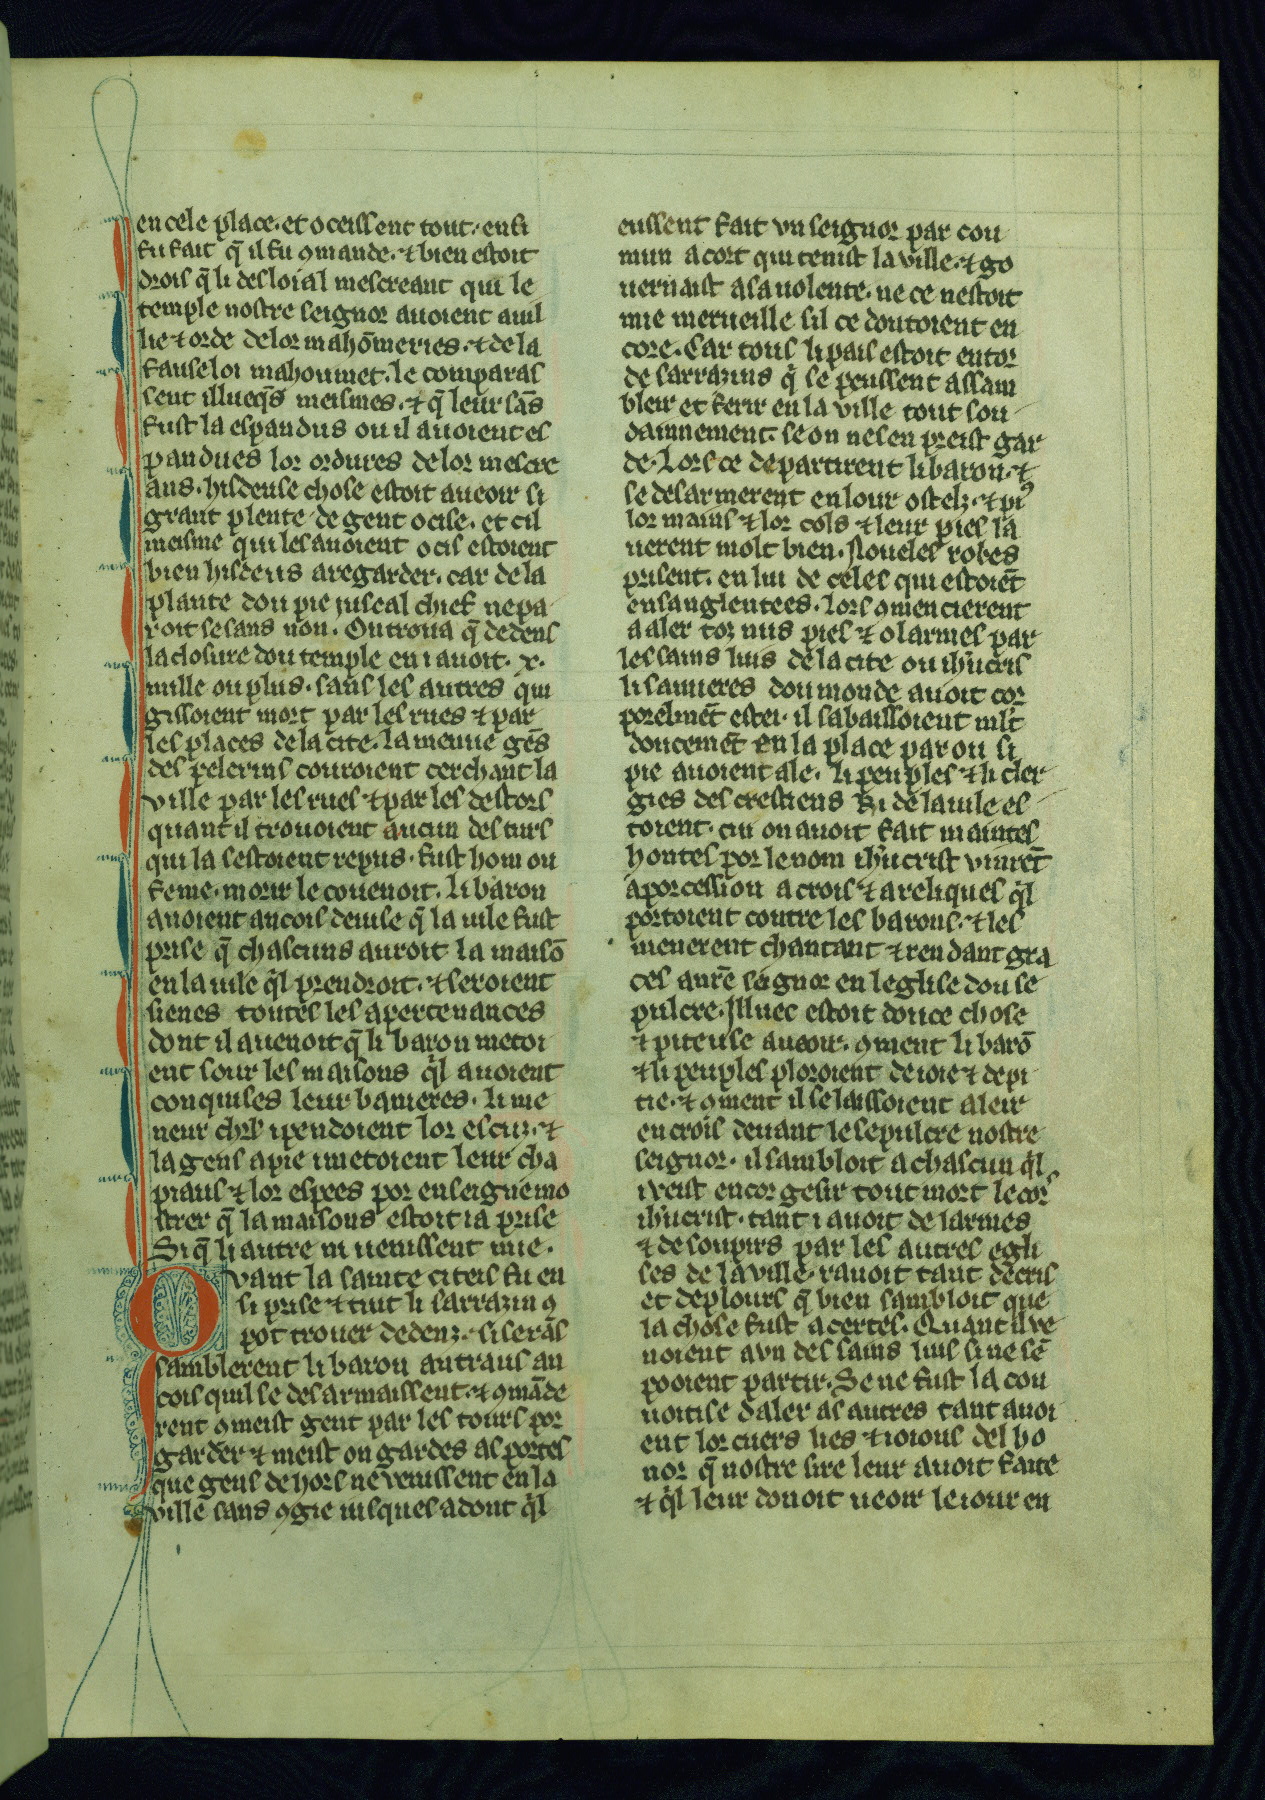 en cele place. et oceissent tout. ensi
fu fait q̄ il fu 9mande. ⁊ bien estoit
drois q̄ li desloial mescreant qui le
temple nostre seignor auoient auil
lie ⁊ orde de lor mahōmeries. ⁊ de la
fause loi mahoumet. le comparas
sent illueq̄s meismes. ⁊ q̄ leur sās
fust la espandus ou il auoient es
pandues lor ordures de lor mescre
ans. hisdeuse chose estoit aueoir si
grant plente de gent ocise. et cil
meisme qui les auoient ocis estoient
bien hisdeus aregarder. car de la
plante dou pie iuscal chief ne pa
roit se sans non. On troua q̄ dedens
la closure dou temple en i auoit. x.
mille ou plus. sans les autres qui
gissoient mort par les rues ⁊ par
les places de la cite. la menue gēs
des pelerins couroient cerchant la
ville par les rues ⁊ par les destors
quant il trouoient aucun des turs
qui la sestoient repus. fust hom ou
feme. morir le couenoit. li baron
auoient ancois deuise q̄ la uile fust
prise q̄ chascuns auroit la maisō
en la uile q̄l prendroit. ⁊ seroient
sienes toutes les apertenances
dont il auenoit q̄ li baron metoi
ent sour les maisons q̄l auoient
conquises leur banieres. li me
neur chlr ipendoient lor escuz. ⁊
la gens apie i metoient leur cha
piaus ⁊ lor espees por enseigne mo
strer q̄ la maisons estoit ia prise
Si q̄ li autre ni uenissent mie.
Qvant la sainte citeis fu en
si prise ⁊ tint li sarrazin 9
pot trouer dedenz. si se rās
samblerent li baron autraus an
cois quil se desarmaissent. ⁊ 9māde
rent 9 meist gent par les tours por
garder ⁊ meist on gardes as portes
que gens de hors ne venissent en la
ville sans 9gie iusques adont q̄l
eussent fait vn seignor par cou
mun acort qui tenist la ville. ⁊ go
uernaist asa uolente. ne ce nestoit
mie merueille sil ce doutoient en
core. Car tous li pais estoit entor
de sarrazins q̄ se peussent assam
bleir et ferir en la ville tout sou
dainnement. se on nes en preist gar
de. Lors ce departirent li baron. ⁊
se desarmerent en lour ostelz. ⁊ pi9
lor mains ⁊ lor cols ⁊ leur pies la
uerent molt bien. Noueles robes
prisent. en lui de celes qui estoiēt
ensanglentees. Lors 9mencierent
a aler toz nus pies ⁊ o larmes par
les sains luis de la cite ou ih'ucris
li sauueres dou monde auoit cor
porelmēt estei. il sabaissoient mlt
doucemēt en la place par ou si
pie auoient ale. li peuples ⁊ li cler
gies des crestiens ki de la uile es
toient. cui on auoit fait maintes
hontes por le nom ih'ucrist vinrēt
aporcession a crois ⁊ areliques q̄l
portoient contre les barons. ⁊ les
menerent chantant ⁊ rendant gra
ces anr̄e seignor en leglise dou se
pulcre. Illuec estoit douce chose
⁊ piteuse aueoir. 9ment li barō
⁊ li peuples ploroient de ioie ⁊ de pi
tie. ⁊ 9ment il se laissoient aleir
en crois deuant le sepulcre nostre
seignor. il sambloit a chascun q̄l
iveist encor gesir tout mort le cors
ih'ucrist. tant i auoit de larmes
⁊ de soupirs par les autres egli
ses de la ville. rauoit tant de cris
et de plours q̄ bien sambloit que
la chose fust acertes. Quant il ve
noient a vn des sains luis si ne sē
pooient partir. Se ne fust la cou
uoitise daler as autres tant auoi
ent lor cuers lies ⁊ ioious del ho
nor q̄ nostre sire leur auoit faite
⁊ q̄l leur donoit ueoir le iour en